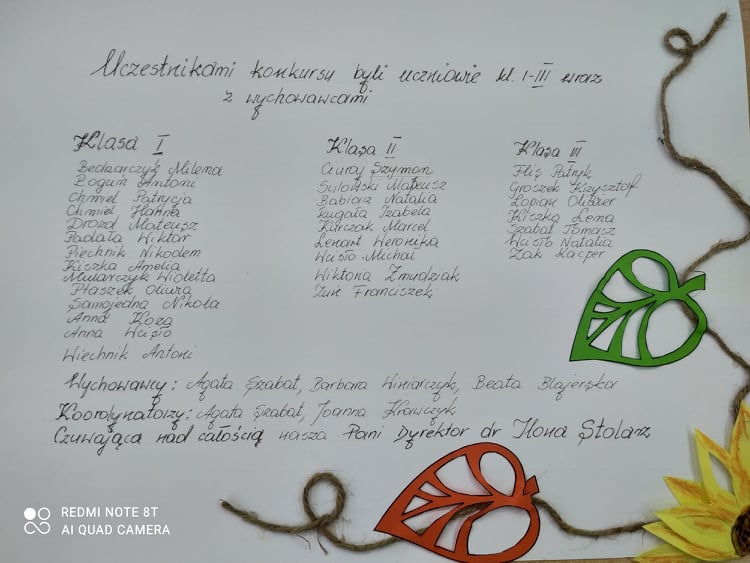 Uczestnikami konkursu byli uczniowie kl. I-III wraz
z wychowawcami
Klasa I
Bednarczyk Milena
Bogun Antoni
Chmiel Patrycja
Chmiel Hanna
Drozd Mateusz
Padała Wiktor
Piechnik Nikodem
Kiszka Amelia
Mularczyk Wioletta
Ptaszek Oliwia
Samojedna Nikola
Anna Koza
Anna Wcisło
Wiechnik Antoni
Klasa II
Ciuraj Szymon
Sulowski Mateusz
Babiarz Natalia
Kugała Izabela
Kirczak Marcel
Lenart Weronika
Wcisło Michał
Wiktoria Żmudziak
Franciszek
Klasa III
Flis Patryk
Groszek Krzysztof
Łopian Oliwier
Kiszka Lena
Szabat Tomasz
Wcisło Natalia
Żak Kacper
Wychowawcy: Agata Szabat, Barbara Winiarczyk, Beata Blajerska
Koordynatorzy: Agata Szabat, Joanna Krawczyk
Czuwająca nad całością nasza Pani Dyrektor dr Ilona Stolarz
REDMI NOTE 8T
AI QUAD CAMERA